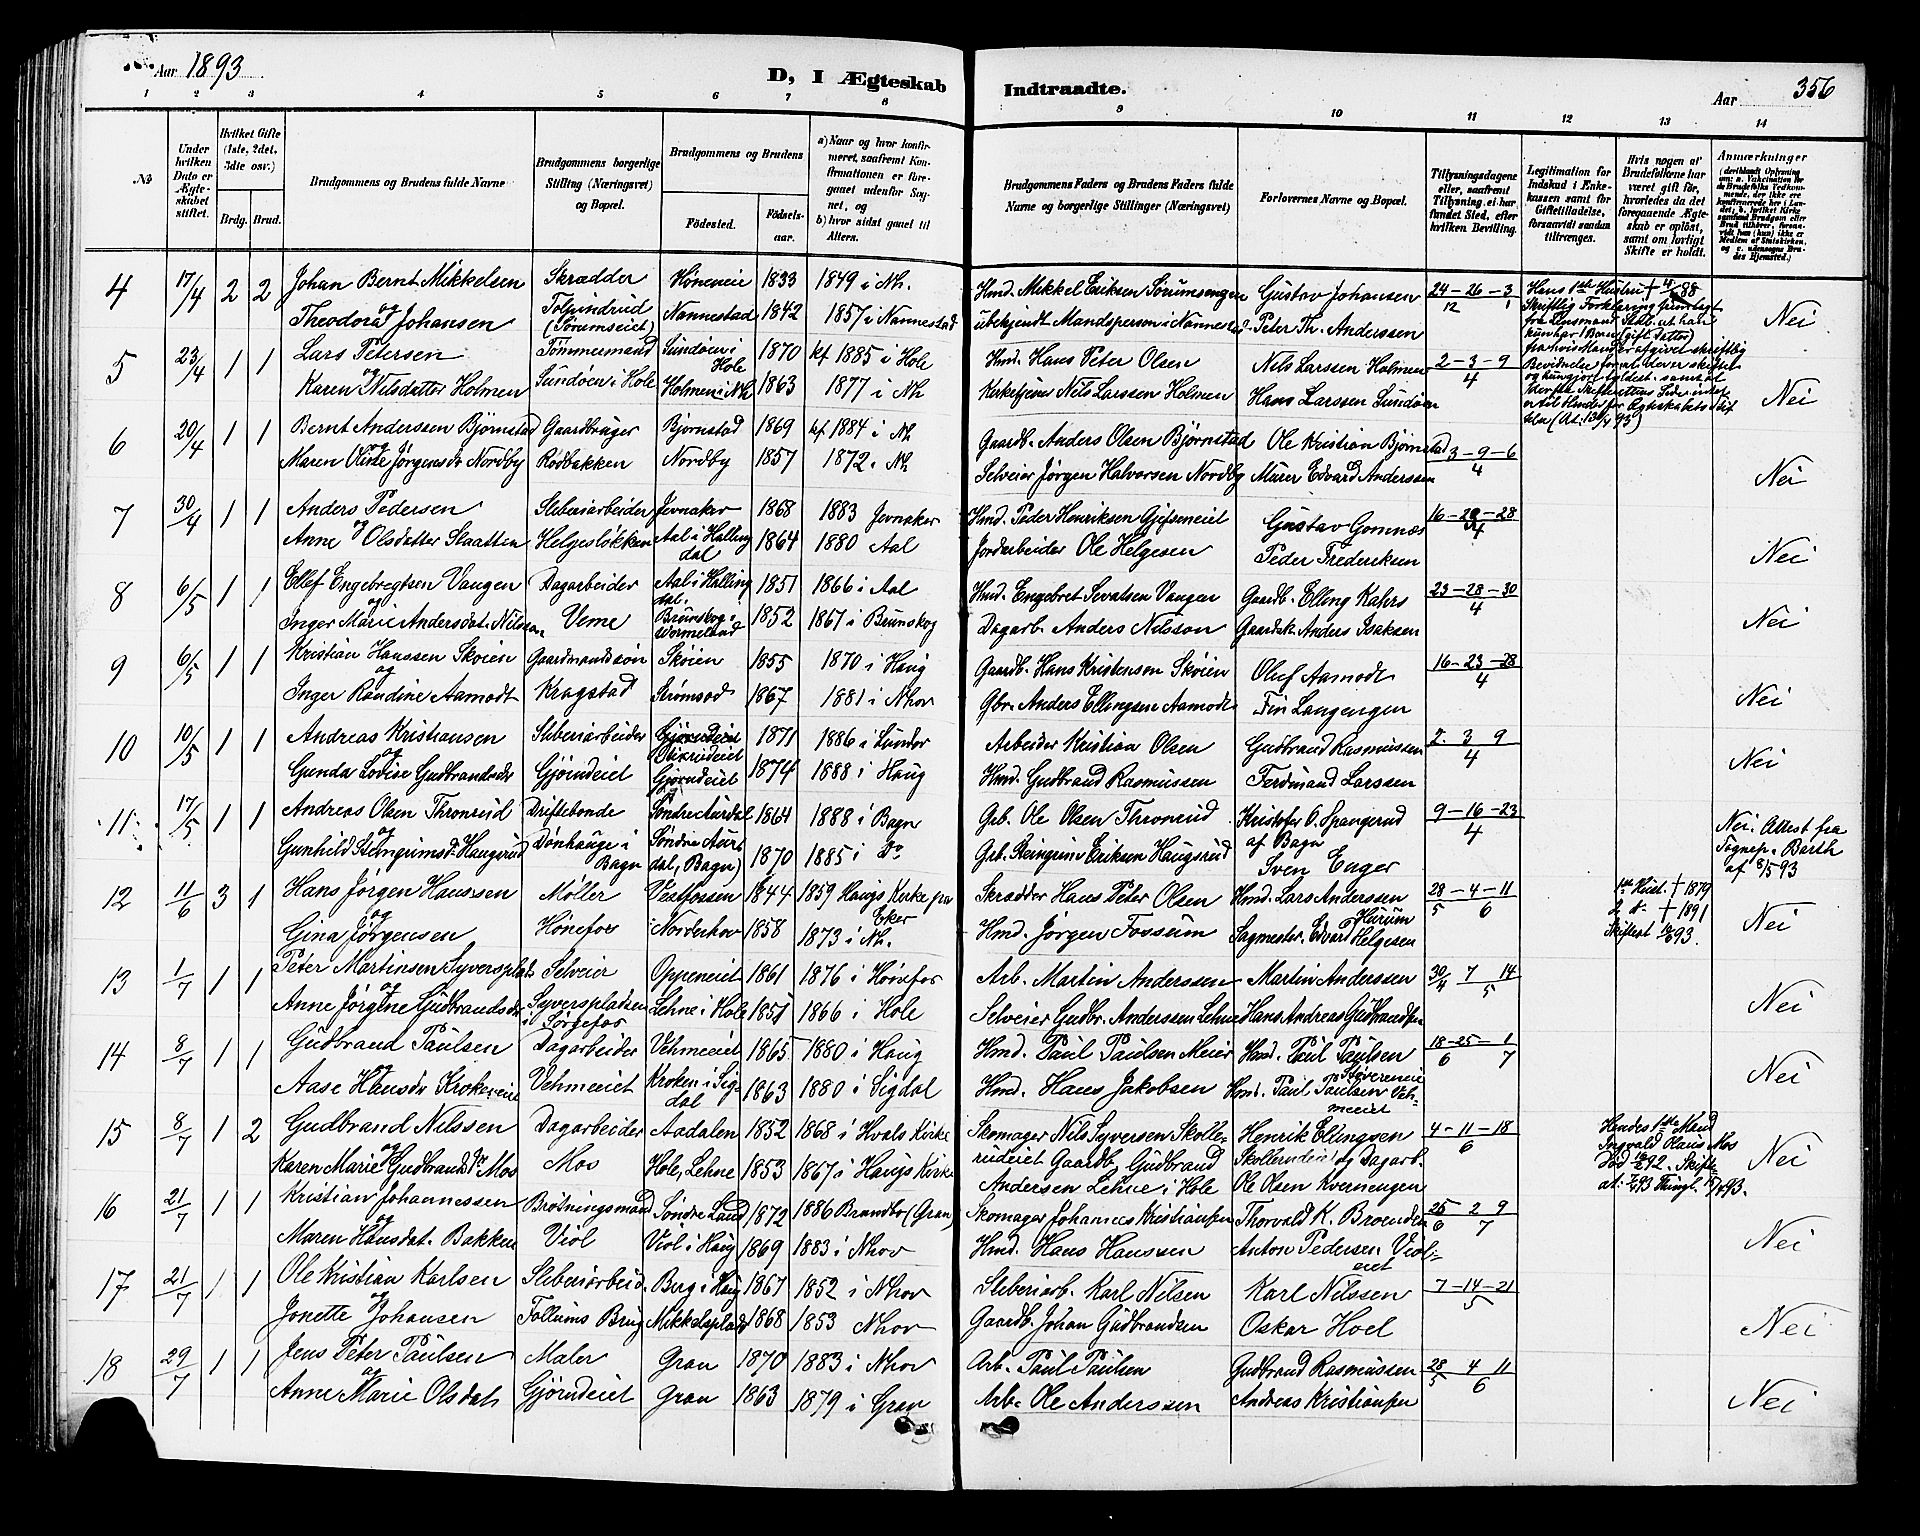 Aar 1893
D, I Ægteskab Indtraadte.
Aar 356
1 2 3 4 5 6 7 8 9 10 11 12 13 14
№
Under hvilken Dato er Ægteskabet stiftet.
Hvilket Gifte (1ste, 2det, 3die osv.)
Brdg. Brud.
Brudgommens og Brudens fulde Navne
Brudgommens borgerlige Stilling (Næringsvei) og Bopæl.
Brudgommens og Brudens
Fødested. Fødselsaar.
a) Naar og hvor konfirmeret, saafremt Konfirmationen er foregaaet udenfor Sognet, og
b) hvor sidst gaaet til Alters.
Brudgommens Faders og Brudens Faders fulde Navne og borgerlige Stillinger (Næringsvei)
Forlovernes Navne og Bopæl.
Tillysningsdagene eller, saafremt Tillysning ei har fundet Sted, efter hvilken Bevilling.
Legitimation for Indskud i Enkekassen samt for Giftetilladelse, forsaavidt saadan tiltrænges.
Hvis nogen af Brudefolkene har været gift før, hvorledes da det foregaaende Ægteskab er opløst, samt om lovligt Skifte er holdt.
Anmærkninger
4 17/4 2 2 Johan Bernt Mikkelsen Skrædder Høneneie 1833 1849 i Nh. Hmd. Mikkel Eriksen Sørumsengen Gustav Johansen 24-26-3 Hans 1ste Hustru
og Theodora Johansen (Sørumseiet) Nannestad 1842 1857 i Nannestad ubekjendt Mandsperson i Nannestad Peter Th. Anderssen 12 1 Nei
5 23/4 1 1 Lars Petersen Tømmermand Sundøen i Hole 1870 kf 1885 i Hole Hmd. Hans Peter Olsen Nils Larssen Holmen 2-3-9
og Karen Nilsdatter Holmen Sundøen i Hole Holmen i Nh 1863 1877 i Nh Kirketjener Nils Larssen Holmen Hans Larssen Sundøen 4 Nei
6 20/4 1 1 Bernt Anderssen Bjørnstad Gaardbruger Bjørnstad 1869 kf 1884 i Nh Gaardb. Anders Olsen Bjørnstad Ole Kristian Bjørnstad 3-9-6
og Maren Oline Jørgensdr Nordby Rødbakken Nordby 1857 1872 i Nh Selveier Jørgen Halvorsen Nordby Murer Edvard Anderssen 4 Nei
7 30/4 1 1 Anders Pedersen Sliberiarbeider Jevnaker 1868 1883 Jevnaker Hmd. Peder Henriksen Gjefseneiet Gustav Gomnæs 16-28
og Anne Olsdatter Slaatten Helgesløkken Aal i Hallingdal 1864 1880 Aal Jordarbeider Ole Helgesen Peder Frederiksen Nei
8 6/5 1 1 Ellef Engebregtsen Vangen Dagarbeider Aal i Hallingdal. 1851 1866 i Aal Hmd. Engebret Sevatsen Vangen Gaardb. Elling Kahrs 23-28-30
og Inger Marie Andersdat. Nilsson Veme Brunskog i Wermeland 1852 1867 i Brunskog Dagarb. Anders Nilsson Gaardsk. Anders Isaksen 4 Nei
9 6/5 1 1 Kristian Hanssen Skøien Gaardmandssøn Skøien 1855 1870 i Haug Gaardb. Hans Kristensen Skøien Oluf Aamodt 16-23-28
og Inger Randine Aamodt Kragstad Strømsod 1867 1881 i Nhov Gbr. Anders Ellingsen Aamodt Fin Langengen 4 Nei
10 10/5 1 1 Andreas Kristiansen Sliberiarbeider 1871 1886 i Lunder Arbeider Kristian Olsen Gudbrand Rasmussen 2. 3 9
og Gunda Lovise Gudbrandsdr Gjørndeiet Gjørndeiet 1874 1888 i Haug Hmd. Gudbrand Rasmussen Ferdinand Larssen 4 Nei
11 17/5 1 1 Andreas Olsen Thronrud Driftebonde Søndre Aurdal 1864 1888 i Bagn Grb. Ole Olsen Thronrud Kristofer O. Spangerud af Bagn 9-16-23
og Gunhild Steingrimsd. Haugerud Dønhauge i Bagn Søndre Aurdal, (Bagn) 1870 1885 i Do Grb. Steingrim Eriksen Haugsrud Sven Enger 4 Nei. Attest fra Sognep. Barth af 8/5 93
12 11/6 3 1 Hans Jørgen Hanssen Møller Vestfossen 1844 1859 Haugs Kirke fra Eker Skrædder Hans Peter Olsen Hmd. Lars Anderssen Hurum 28-4-11 1ste Hust. † 1879
og Gina Jørgensen Hønefos Norderhov 1858 1873 i Nh. Hmd. Jørgen Fossum Sagmester. Edvard Helgesen 5 6 2 d. † 1891 Nei
13 1/7 1 1 Peter Martinsen Syversplads Selveier Oppeneiet 1861 1876 i Hønefos Arb. Martin Anderssen Martin Anderssen 30/4 7 14
og Anne Jørgine Gudbrandsdr Syverspladsen i Lehne i Hole 1851 1866 i Hole Selveier Gudbr. Anderssen Lehne Hans Andreas Gudbrandsen 5 Nei
14 8/7 1 1 Gudbrand Paulsen Dagarbeider Vehmeeiet 1865 1880 i Haug Hmd. Paul Paulsen Meier Hmd. Paul Paulsen 18-25-1
og Aase Hansdr Krokeneiet Vehmeeiet Kroken i Sigdal 1863 1880 i Sigdal Hmd. Hans Jakobsen Hmd. Paul Paulsen Vehmeeiet 6 7 Nei
15 8/7 1 2 Gudbrand Nilssen Dagarbeider Aadalen 1852 1868 i Hvals Kirke Skomager Nils Syversen Skollerudeiet Henrik Ellingsen 4-11-18 Hendes 1ste Mand
og Karen Marie Gudbrandsdr Mos Mos Hole, Lehne 1853 1867 i Haugs Kirke Gaardb. Gudbrand Andersen Lehne i Hole og Dagarb. Ole Olsen Kvernengen 6 Ingvald Olaus Mos Nei
16 21/7 1 1 Kristian Johannessen Brolningsmand Søndre Land 1872 1886 Brandbo (Gran) Skomager Johannes Kristiansen Thorvald K. Broenden 25 2 9
og Maren Hansdat. Bakken Viol Viol i Haug 1869 1883 i Nhov Hmd. Hans Hanssen Anton Pedersen Violeiet 6 7 Nei
17 21/7 1 1 Ole Kristian Karlsen Sliberiarbeid. Berg i Haug 1867 1852 i Nhov Sliberiarb. Karl Nilsen Karl Nilssen 7-14-21
og Jonette Johansen Follums Brug Mikkelsplads 1868 1853 Nhov Gaardb. Johan Gudbrandsen Oskar Hoel 5 Nei
18 29/7 1 1 Jens Peter Paulsen Maler Gran 1870 1883 i Nhov Arb. Paul Paulsen Gudbrand Rasmussen 28 4 11
og Anne Marie Olsdat. Gjørndeiet Gran 1863 1879 i Gran Arb. Ole Anderssen Andreas Kristiansen 5 6 Nei